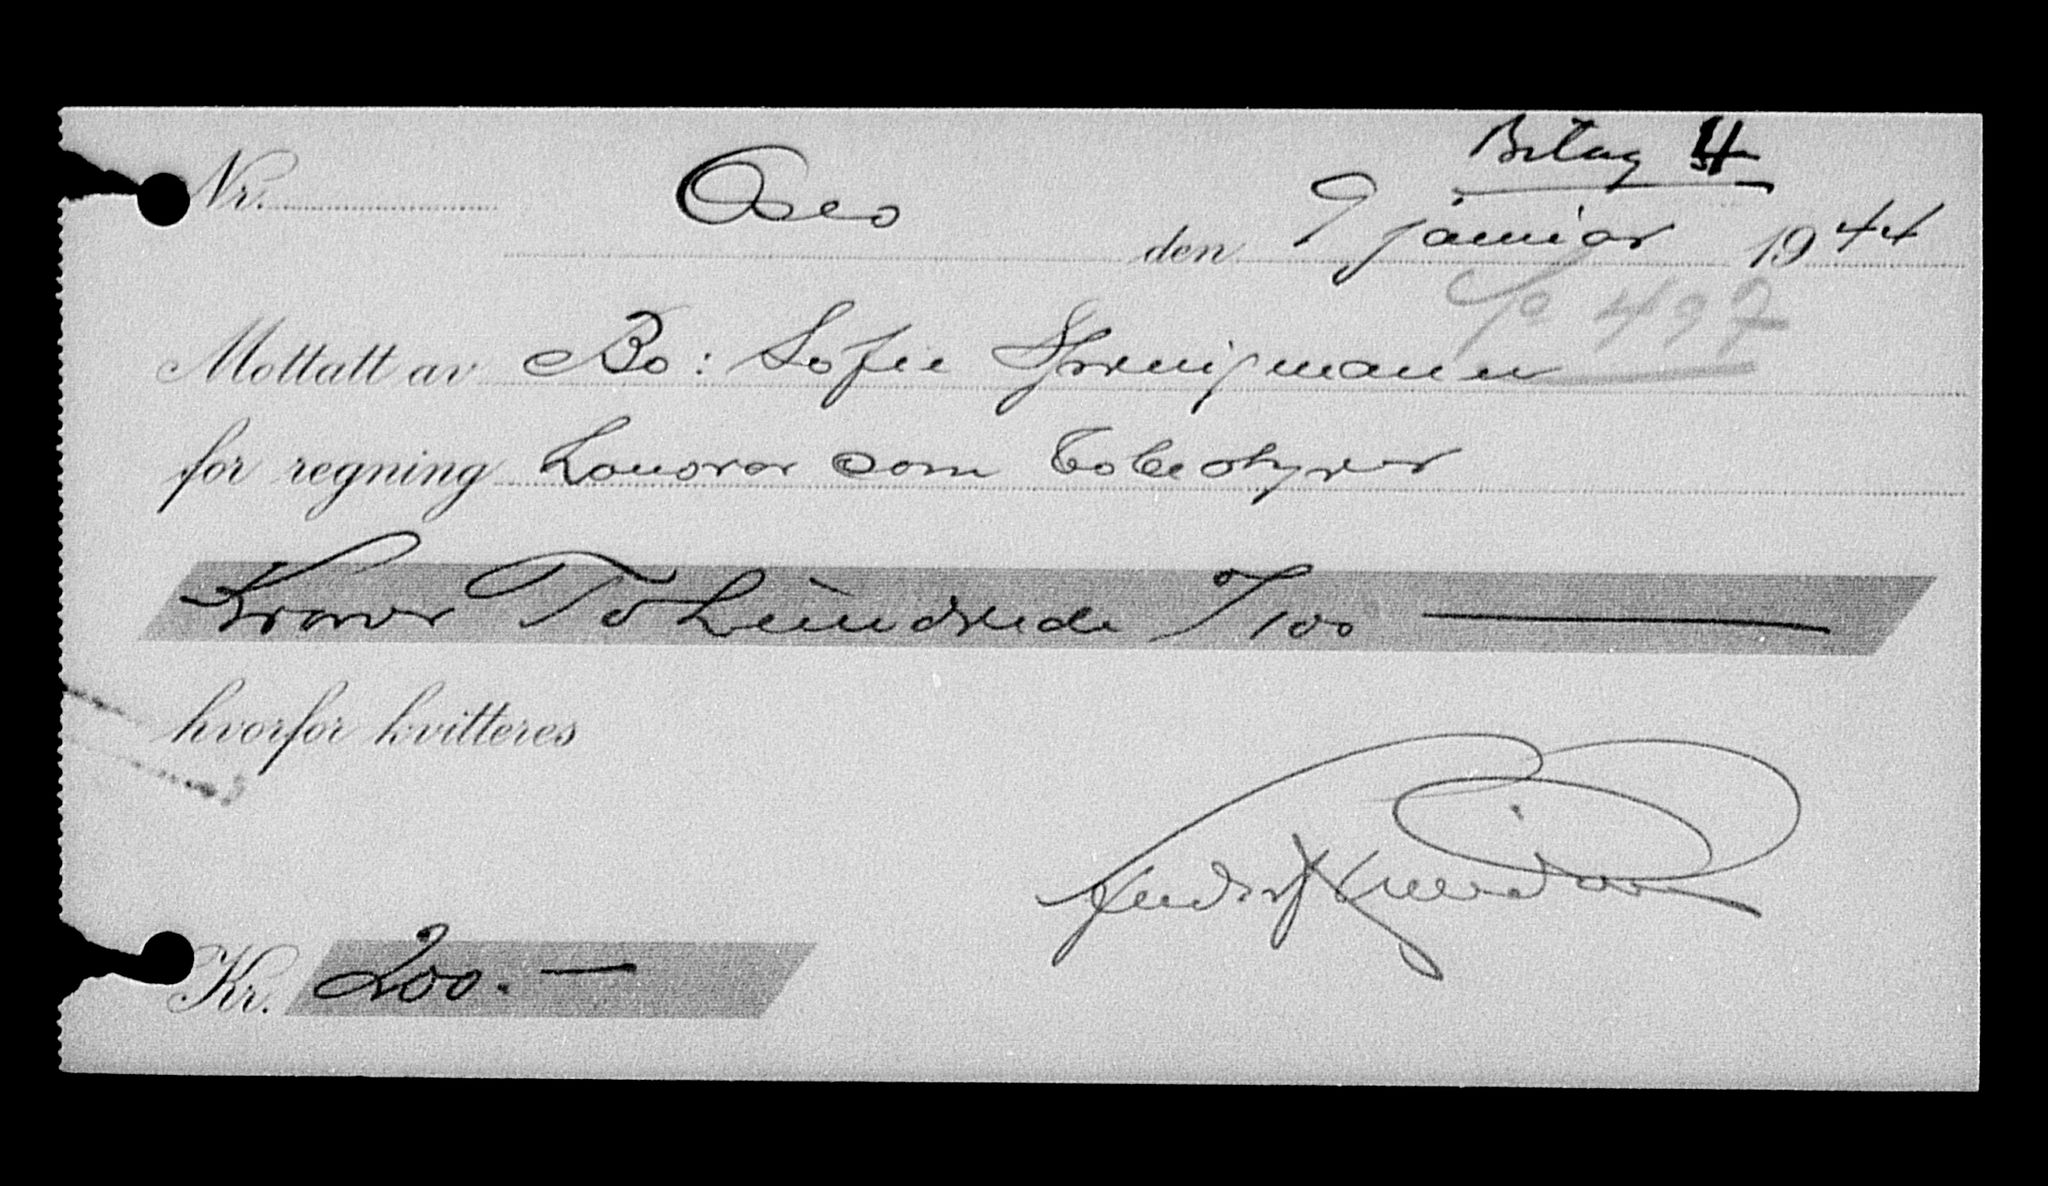 Bilag 4
Nr. Oslo den 9 januar 1944
497
Mottatt av Bo: Sofie
for regning Honorar som bobestyrer
Kroner To hundrede 0/100
hvorfor kvitteres
Kr. 200.—